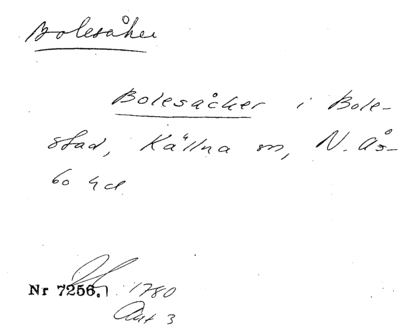 Bolesåker
Bolesåcker i Bole-
stad, Källna sn, N. Ås-
bo hd
Nr 7256. 1780
Akt 3